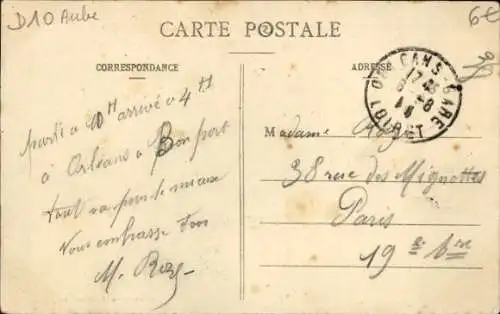 D10 Aube
6€
CARTE POSTALE
CORRESPONDANCE
ADRESSE
ORLEANS GARE
LOIRET
parti à 10H arrivé à 4H
à Orléans à Bon port
tout va pour le mieux
Vous embrasse Tous
M.
Madame
38 rue des Mignottes
Paris
19e